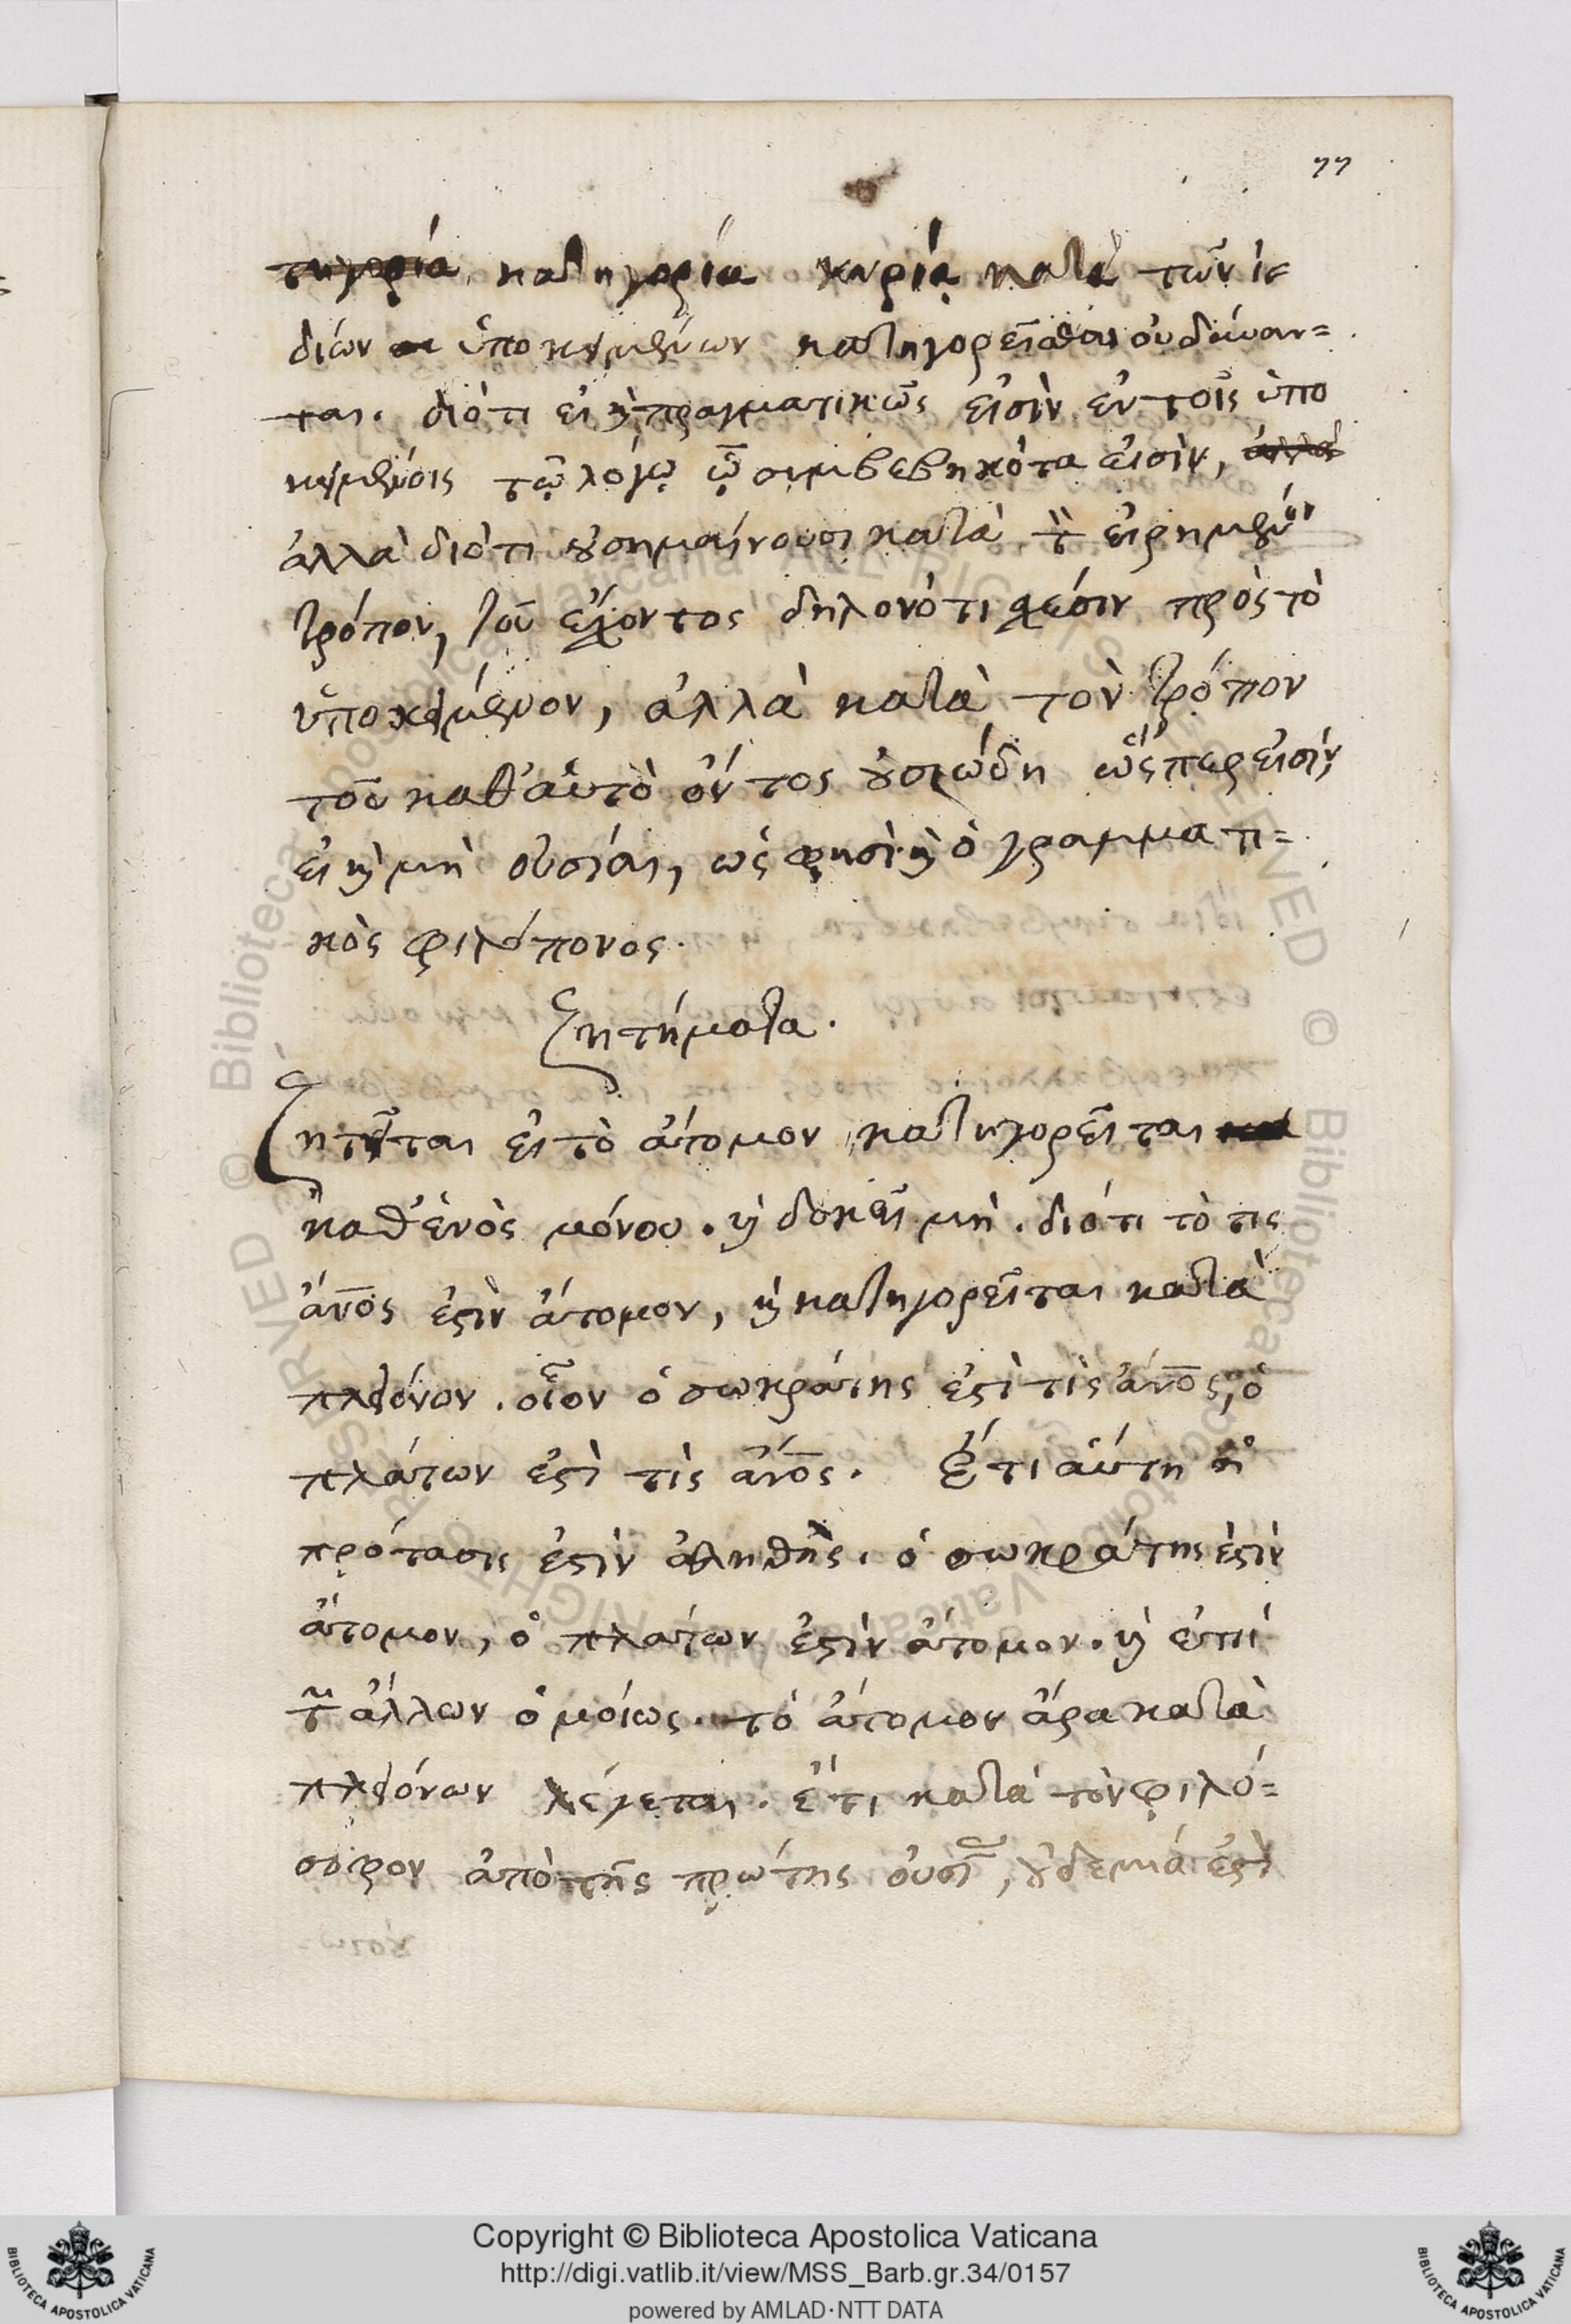 77
τηγορία κατηγορία κυρία κατὰ τῶν ἰ=
δίων ὑποκειμένων κατηγορεῖσθαι οὐ δύναν=
ται. διότι εἰ καὶ πραγματικῶς εἰσὶν ἐν τοῖς ὑπο
κειμένοις τῷ λόγῳ ᾧ συμβεβηκότα εἰσὶν, ἀλλὰ
ἀλλὰ διότι οὐ σημαίνουσι κατὰ τὸν εἰρημένον
τρόπον, τοῦ ἔχοντος δηλονότι χέσιν πρὸς τὸ
ὑποκείμενον, ἀλλὰ κατὰ τὸν τρόπον
τοῦ καθ' αὑτὸ ὄντος οὐσιώδη ὥσπερ εἰσίν,
εἰ καὶ μὴ οὐσίαι, ὡς φησὶ καὶ ὁ γραμματι=
κὸς φιλόπονος.
ζητήματα.
Ζητεῖται εἰ τὸ ἄτομον κατηγορεῖται
καθ' ἑνὸς μόνου. καὶ δοκεῖ μὴ. διότι τὸ τις
ἄνος ἐστὶν ἄτομον, καὶ κατηγορεῖται κατὰ
πλειόνων. οἷον ὁ σωκράτης ἐστὶ τὶς ἄνος, ὁ
πλάτων ἐστὶ τὶς ἄνος. Ἔτι αὕτη ἡ
πρότασις ἐστὶν ἀληθὴς. ὁ σωκράτης ἐστὶν
ἄτομον, ὁ πλάτων ἐστὶν ἄτομον. καὶ ἐπὶ
τῶν ἄλλων ὁμοίως. τὸ ἄτομον ἄρα κατὰ
πλειόνων λέγεται. ἔτι κατὰ τὸν φιλό=
σοφον ἀπὸ τῆς πρώτης οὐσίας, οὐδεμιά ἐστὶ
Copyright © Biblioteca Apostolica Vaticana
http://digi.vatlib.it/view/MSS_Barb.gr.34/0157
powered by AMLAD·NTT DATA